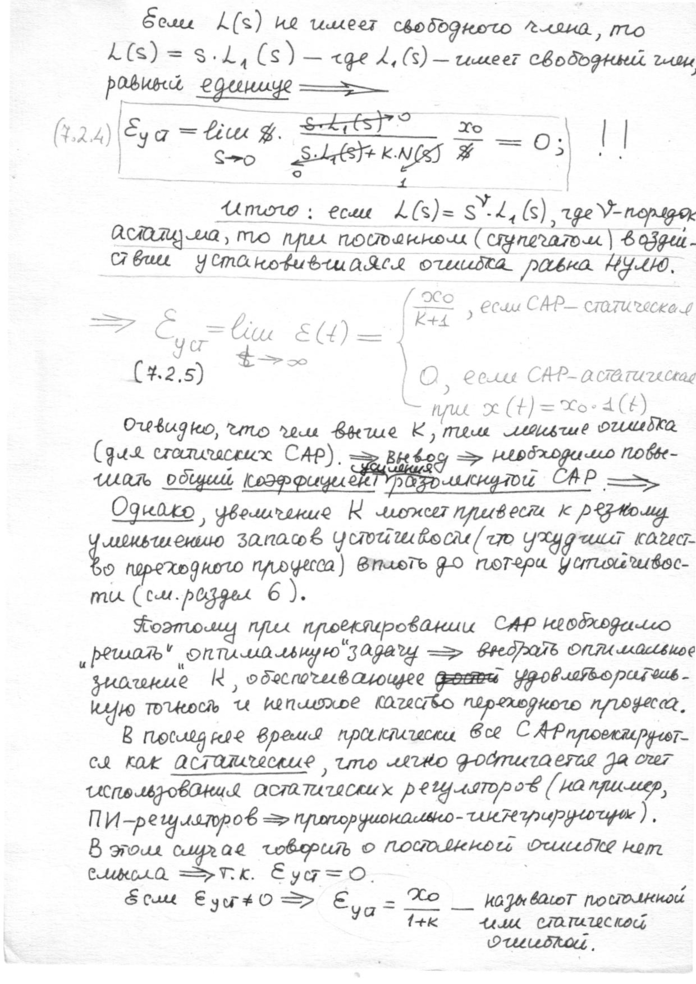 Если L(s) не имеет свободного члена, то
L(s) = s·L₁(s) – где L₁(s) – имеет свободный член,
равный единице ⟹
(7.2.4) εуст = lim s· s·L₁(s)→0 / s·L₁(s)+K·N(s) x₀/s = 0; !!
s→0 0 1
Итого: если L(s) = s^ν·L₁(s), где ν-порядок
астатизма, то при постоянном (ступечатом) воздей-
ствии установившаяся ошибка равна нулю.
⟹ εуст = lim ε(t) = { x₀/K+1, если САР-статическая
t→∞
(7.2.5) 0, если САР-астатическая
при x(t) = x₀·1(t)
Очевидно, что чем выше K, тем меньше ошибка
(для статических САР). ⇒ вывод ⇒ необходимо повы-
шать общий коэффициент усиления разомкнутой САР ⟹
Однако, увеличение K может привести к резкому
уменьшению запасов устойчивости (что ухудшит качест-
во переходного процесса) вплоть до потери устойчивос-
ти (см. раздел 6).
Поэтому при проектировании САР необходимо
"решать" "оптимальную" задачу ⇒ выбрать оптимальное
значение K, обеспечивающее удовлетворитель-
ную точность и неплохое качество переходного процесса.
В последнее время практически все САР проектируют-
ся как астатические, что легко достигается за счет
использования астатических регуляторов (например,
ПИ-регуляторов ⇒ пропорционально-интегрирующих).
В этом случае говорить о постоянной ошибке нет
смысла ⇒ т.к. εуст = 0.
Если εуст ≠ 0 ⇒ εуст = x₀/1+K — называют постоянной
или статической
ошибкой.